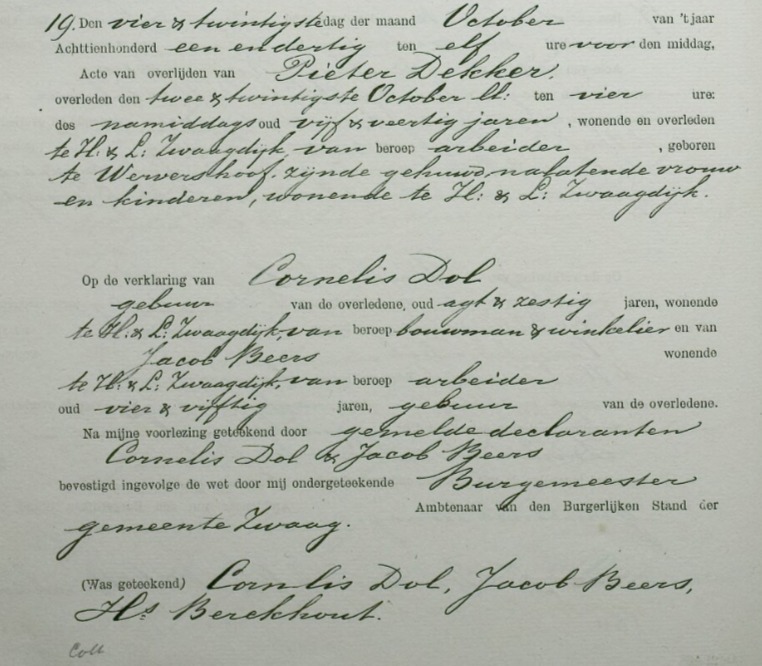 19. Den vier & twintigste dag der maand October van 't jaar
Achttienhonderd een en dertig ten elf ure voor den middag,
Acte van overlijden van Pieter Dekker.
overleden den twee & twintigste October ll: ten vier ure:
des namiddags oud vijf & veertig jaren, wonende en overleden
te H: & L: Zwaagdijk, van beroep arbeider, geboren
te Wervershoof. zijnde gehuwd, nalatende vrouw
en kinderen, wonende te H: & L: Zwaagdijk.
Op de verklaring van Cornelis Dol
gebuur van de overledene, oud agt & zestig jaren, wonende
te H: & L: Zwaagdijk, van beroep bouwman & winkelier en van
Jacob Beers wonende
te H: & L: Zwaagdijk, van beroep arbeider
oud vier & vijftig jaren, gebuur van de overledene.
Na mijne voorlezing geteekend door gemelde declaranten
Cornelis Dol & Jacob Beers
bevestigd ingevolge de wet door mij ondergeteekende Burgemeester
Ambtenaar van den Burgerlijken Stand der
gemeente Zwaag.
(Was geteekend) Cornlis Dol, Jacob Beers,
Hs Berckhout.
Coll